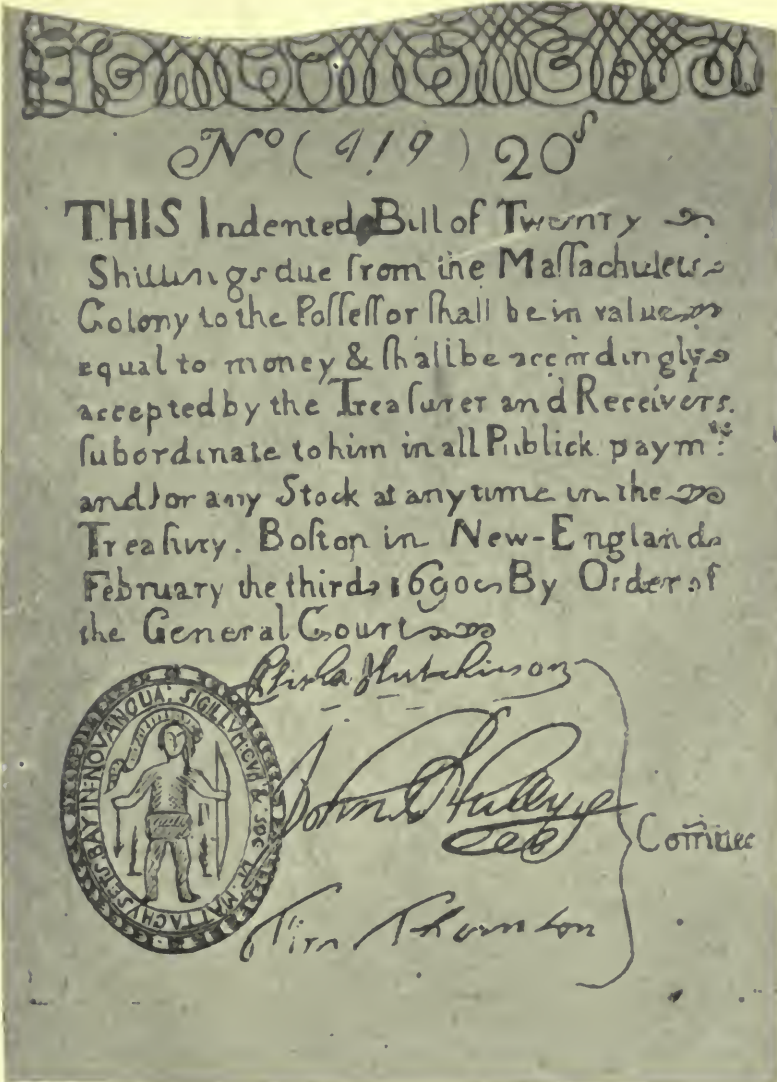 No (919) 20s
THIS Indented Bill of Twenty
Shillings due from the Maſſachuſets
Colony to the Poſſeſſor ſhall be in value
equal to money & ſhall be accordingly
accepted by the Treaſurer and Receivers
ſubordinate to him in all Publick paymts:
and for any Stock at any time in the
Treaſury. Boſton in New-England
February the third 1690 By Order of
the General Court
Eliſha Hutchinson
John
Tim Thornton
Com̃ittee
SIGILLVM: GVB & SOC DE MATTACHVSETS BAY IN NOV ANGLIA: